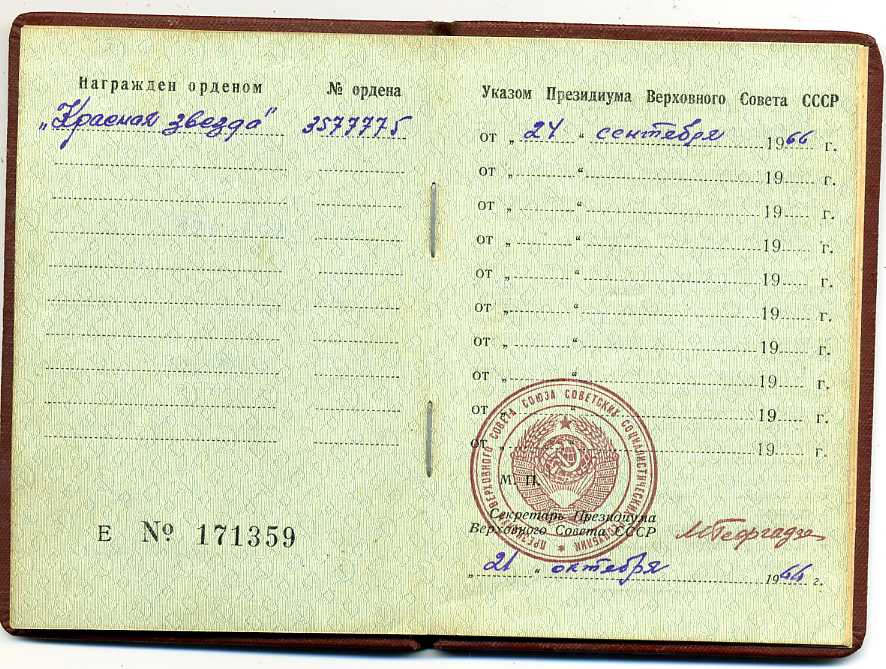 Награжден орденом № ордена
„Красная звезда" 3577775
Е № 171359
Указом Президиума Верховного Совета СССР
от „ 24 " сентября 1966 г.
от „ " 19 г.
от „ " 19 г.
от „ " 19 г.
от „ " 19 г.
от „ " 19 г.
от „ " 19 г.
от „ " 19 г.
от „ " 19 г.
от „ " 19 г.
ПРЕЗИДИУМ ВЕРХОВНОГО СОВЕТА СОЮЗА СОВЕТСКИХ СОЦИАЛИСТИЧЕСКИХ РЕСПУБЛИК
М. П.
Секретарь Президиума
Верховного Совета СССР МГеоргадзе
„ 21 " октября 1966 г.